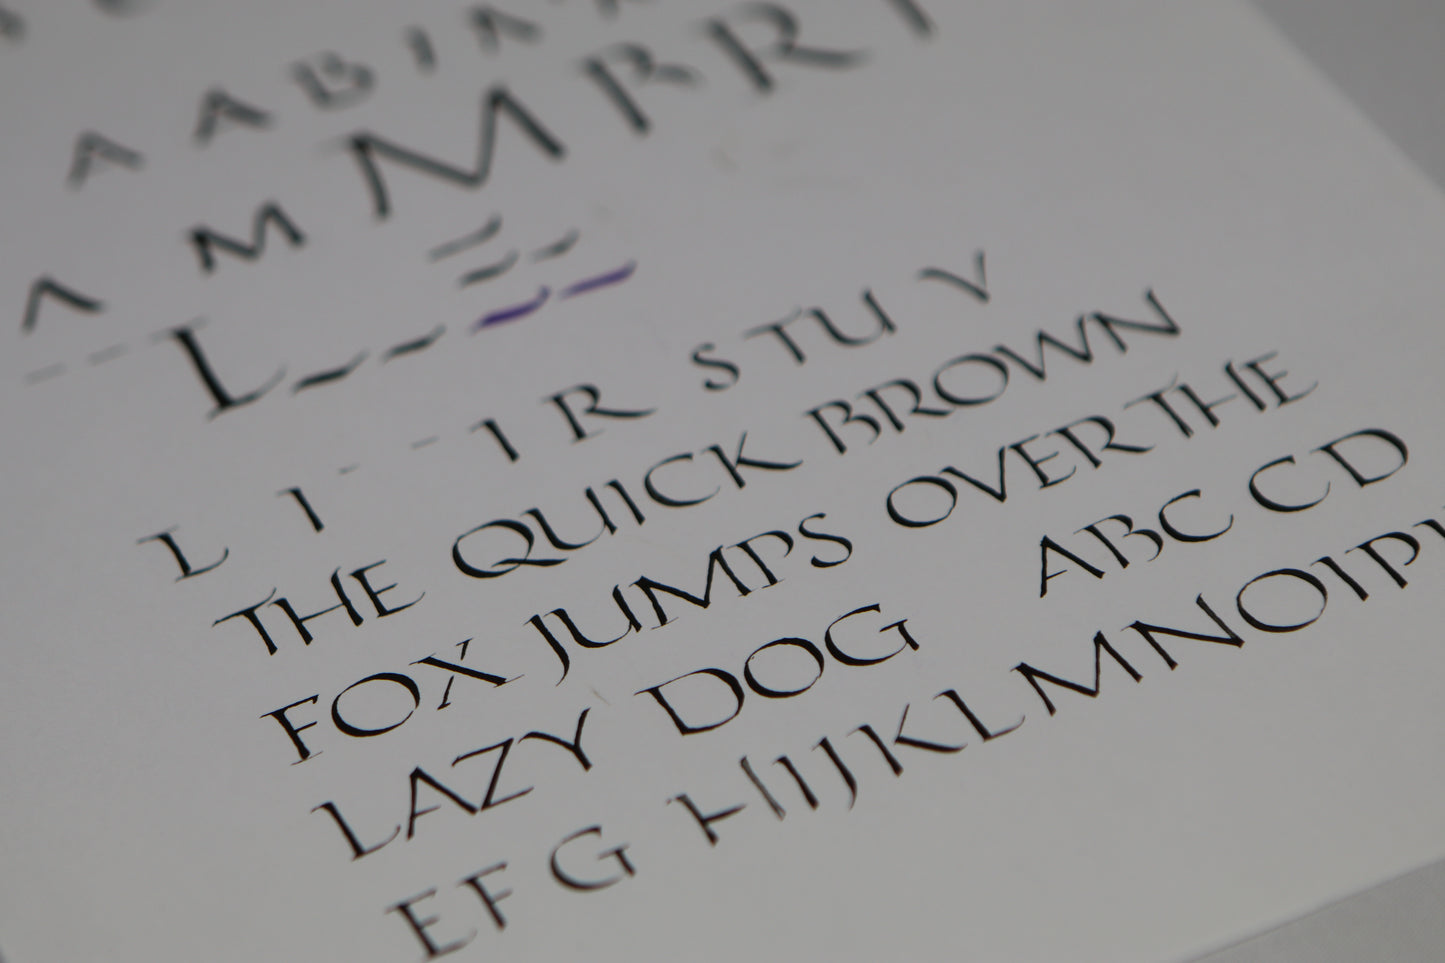 A A B I A
Λ M M R R I
L
L I I R S T U V
THE QUICK BROWN
FOX JUMPS OVER THE
LAZY DOG ABC CD
EFG HIJKLMNOIP